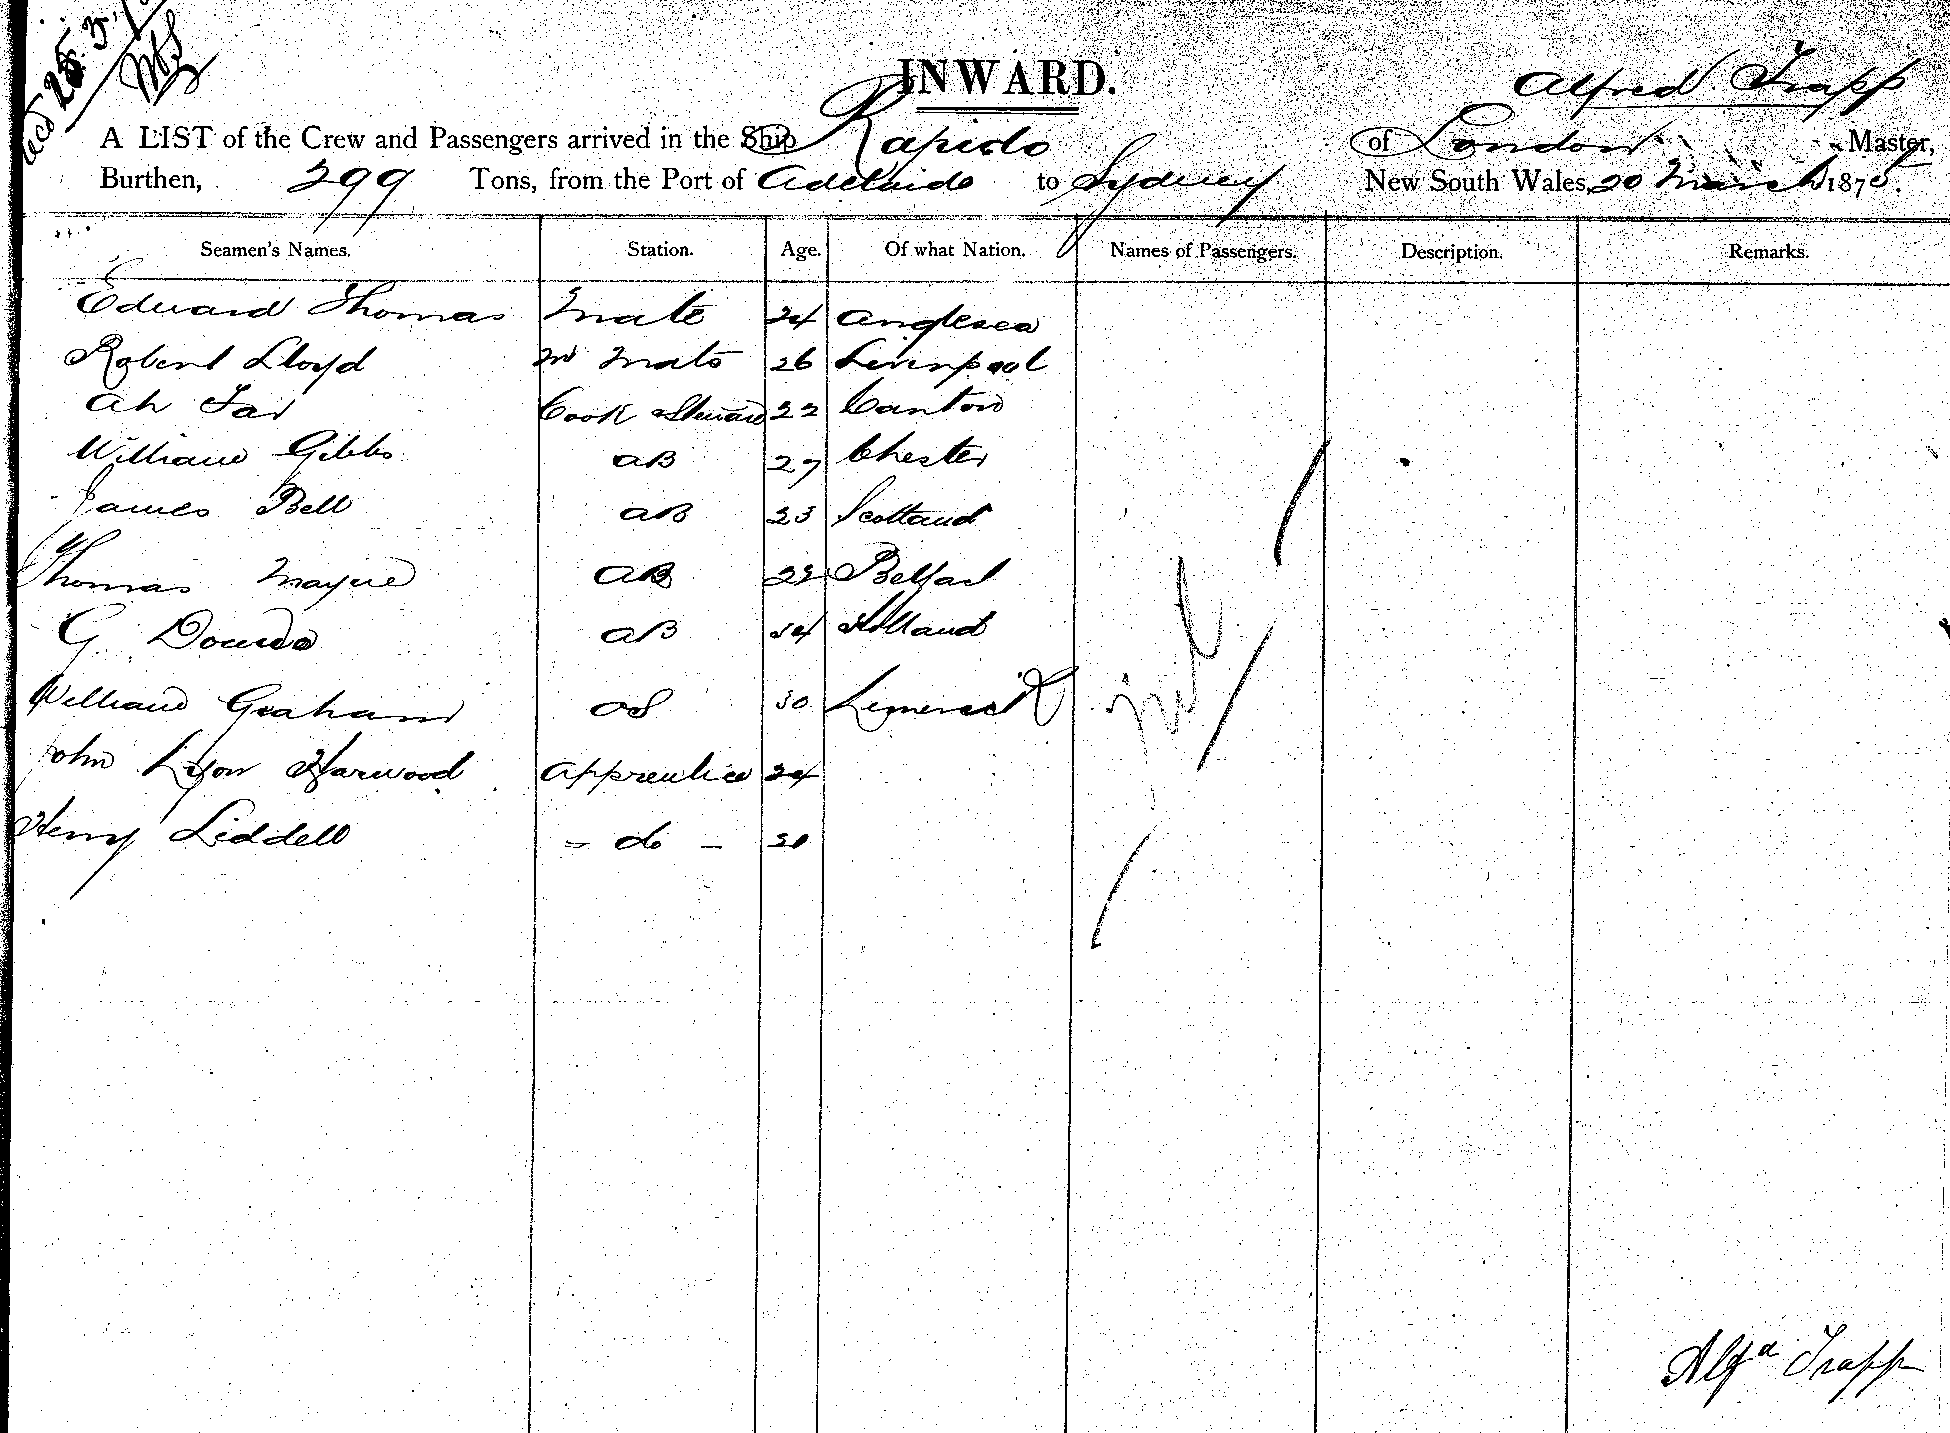 INWARD.
Alfred Trapp
A LIST of the Crew and Passengers arrived in the Ship Rapido of London Master,
Burthen, 299 Tons, from the Port of Adelaide to Sydney New South Wales, 20 March 1875.
Seamen's Names. Station. Age. Of what Nation. Names of Passengers. Description. Remarks.
Edward Thomas Mate 24 Anglesea
Robert Lloyd Mate 26 Liverpool
Ah Cook Steward 22 Canton
William Gibbs AB 27 Chester
James Bell AB 23 Scotland
Thomas Mayne AB 22 Belfast
G. AB Holland
William Graham OS Limerick
nil
John Lyon Harwood Apprentice
Henry Liddell - do -
Alfd Trapp